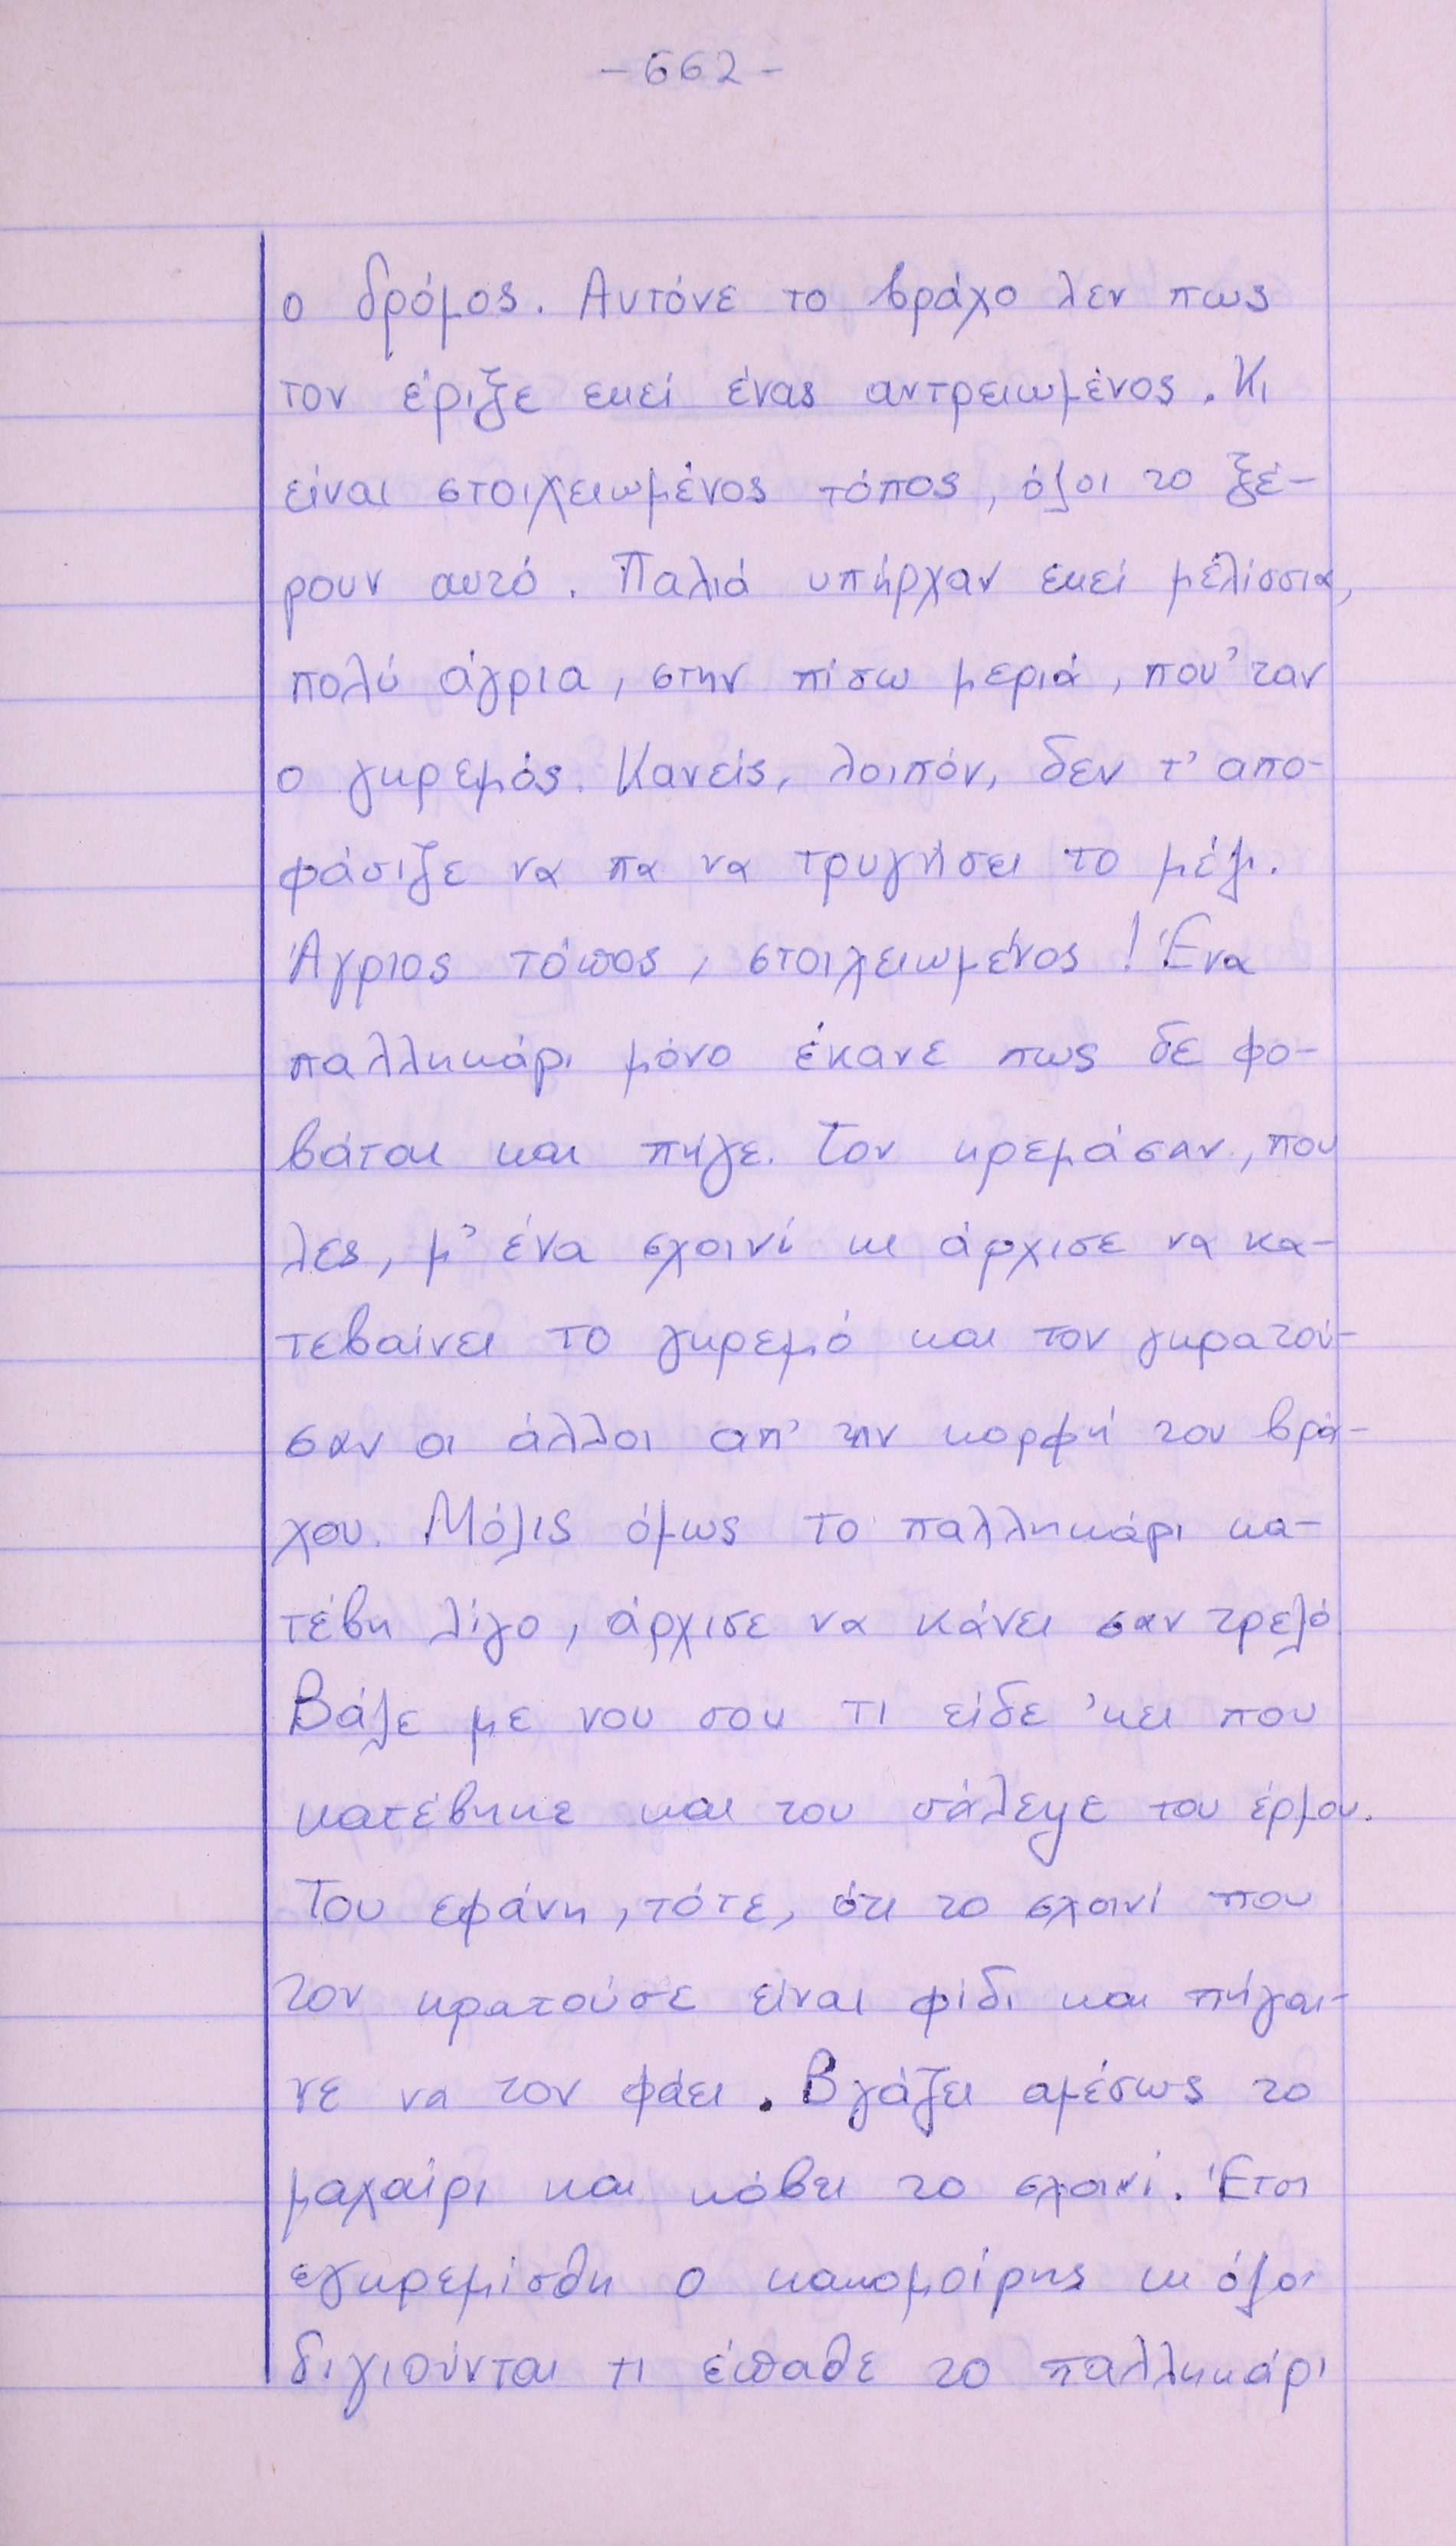 -662-
ο δρόμος. Αυτόνε το βράχο λεν πως
τον έριξε εκεί ένας αντρειωμένος. Κι
είναι στοιχειωμένος τόπος, όλοι το ξέ-
ρουν αυτό. Παλιά υπήρχαν εκεί μελίσσια,
πολύ άγρια, στην πίσω μεριά, που'ταν
ο γκρεμός. Κανείς, λοιπόν, δεν τ' απο-
φάσιζε να πα να τρυγήσει το μέλι.
Άγριος τόπος, στοιχειωμένος! Ένα
παλληκάρι μόνο έκανε πως δε φο-
βάται και πήγε. Τον κρεμάσαν, που
λες, μ' ένα σχοινί κι άρχισε να κα-
τεβαίνει το γκρεμό και τον γκρατού-
σαν οι άλλοι απ' την κορφή του βρά-
χου. Μόλις όμως το παλληκάρι κα-
τέβη λίγο, άρχισε να κάνει σαν τρελό
Βάλε με νου σου τι είδε 'κει που
κατέβηκε και του σάλεψε του έρμου.
Του εφάνη, τότε, ότι το σχοινί που
τον κρατούσε είναι φίδι και πήγαι-
νε να τον φάει. Βγάζει αμέσως το
μαχαίρι και κόβει το σχοινί. Έτσι
εγκρεμίσθη ο κακομοίρης κι όλοι
διγιούνται τι έπαθε το παλληκάρι